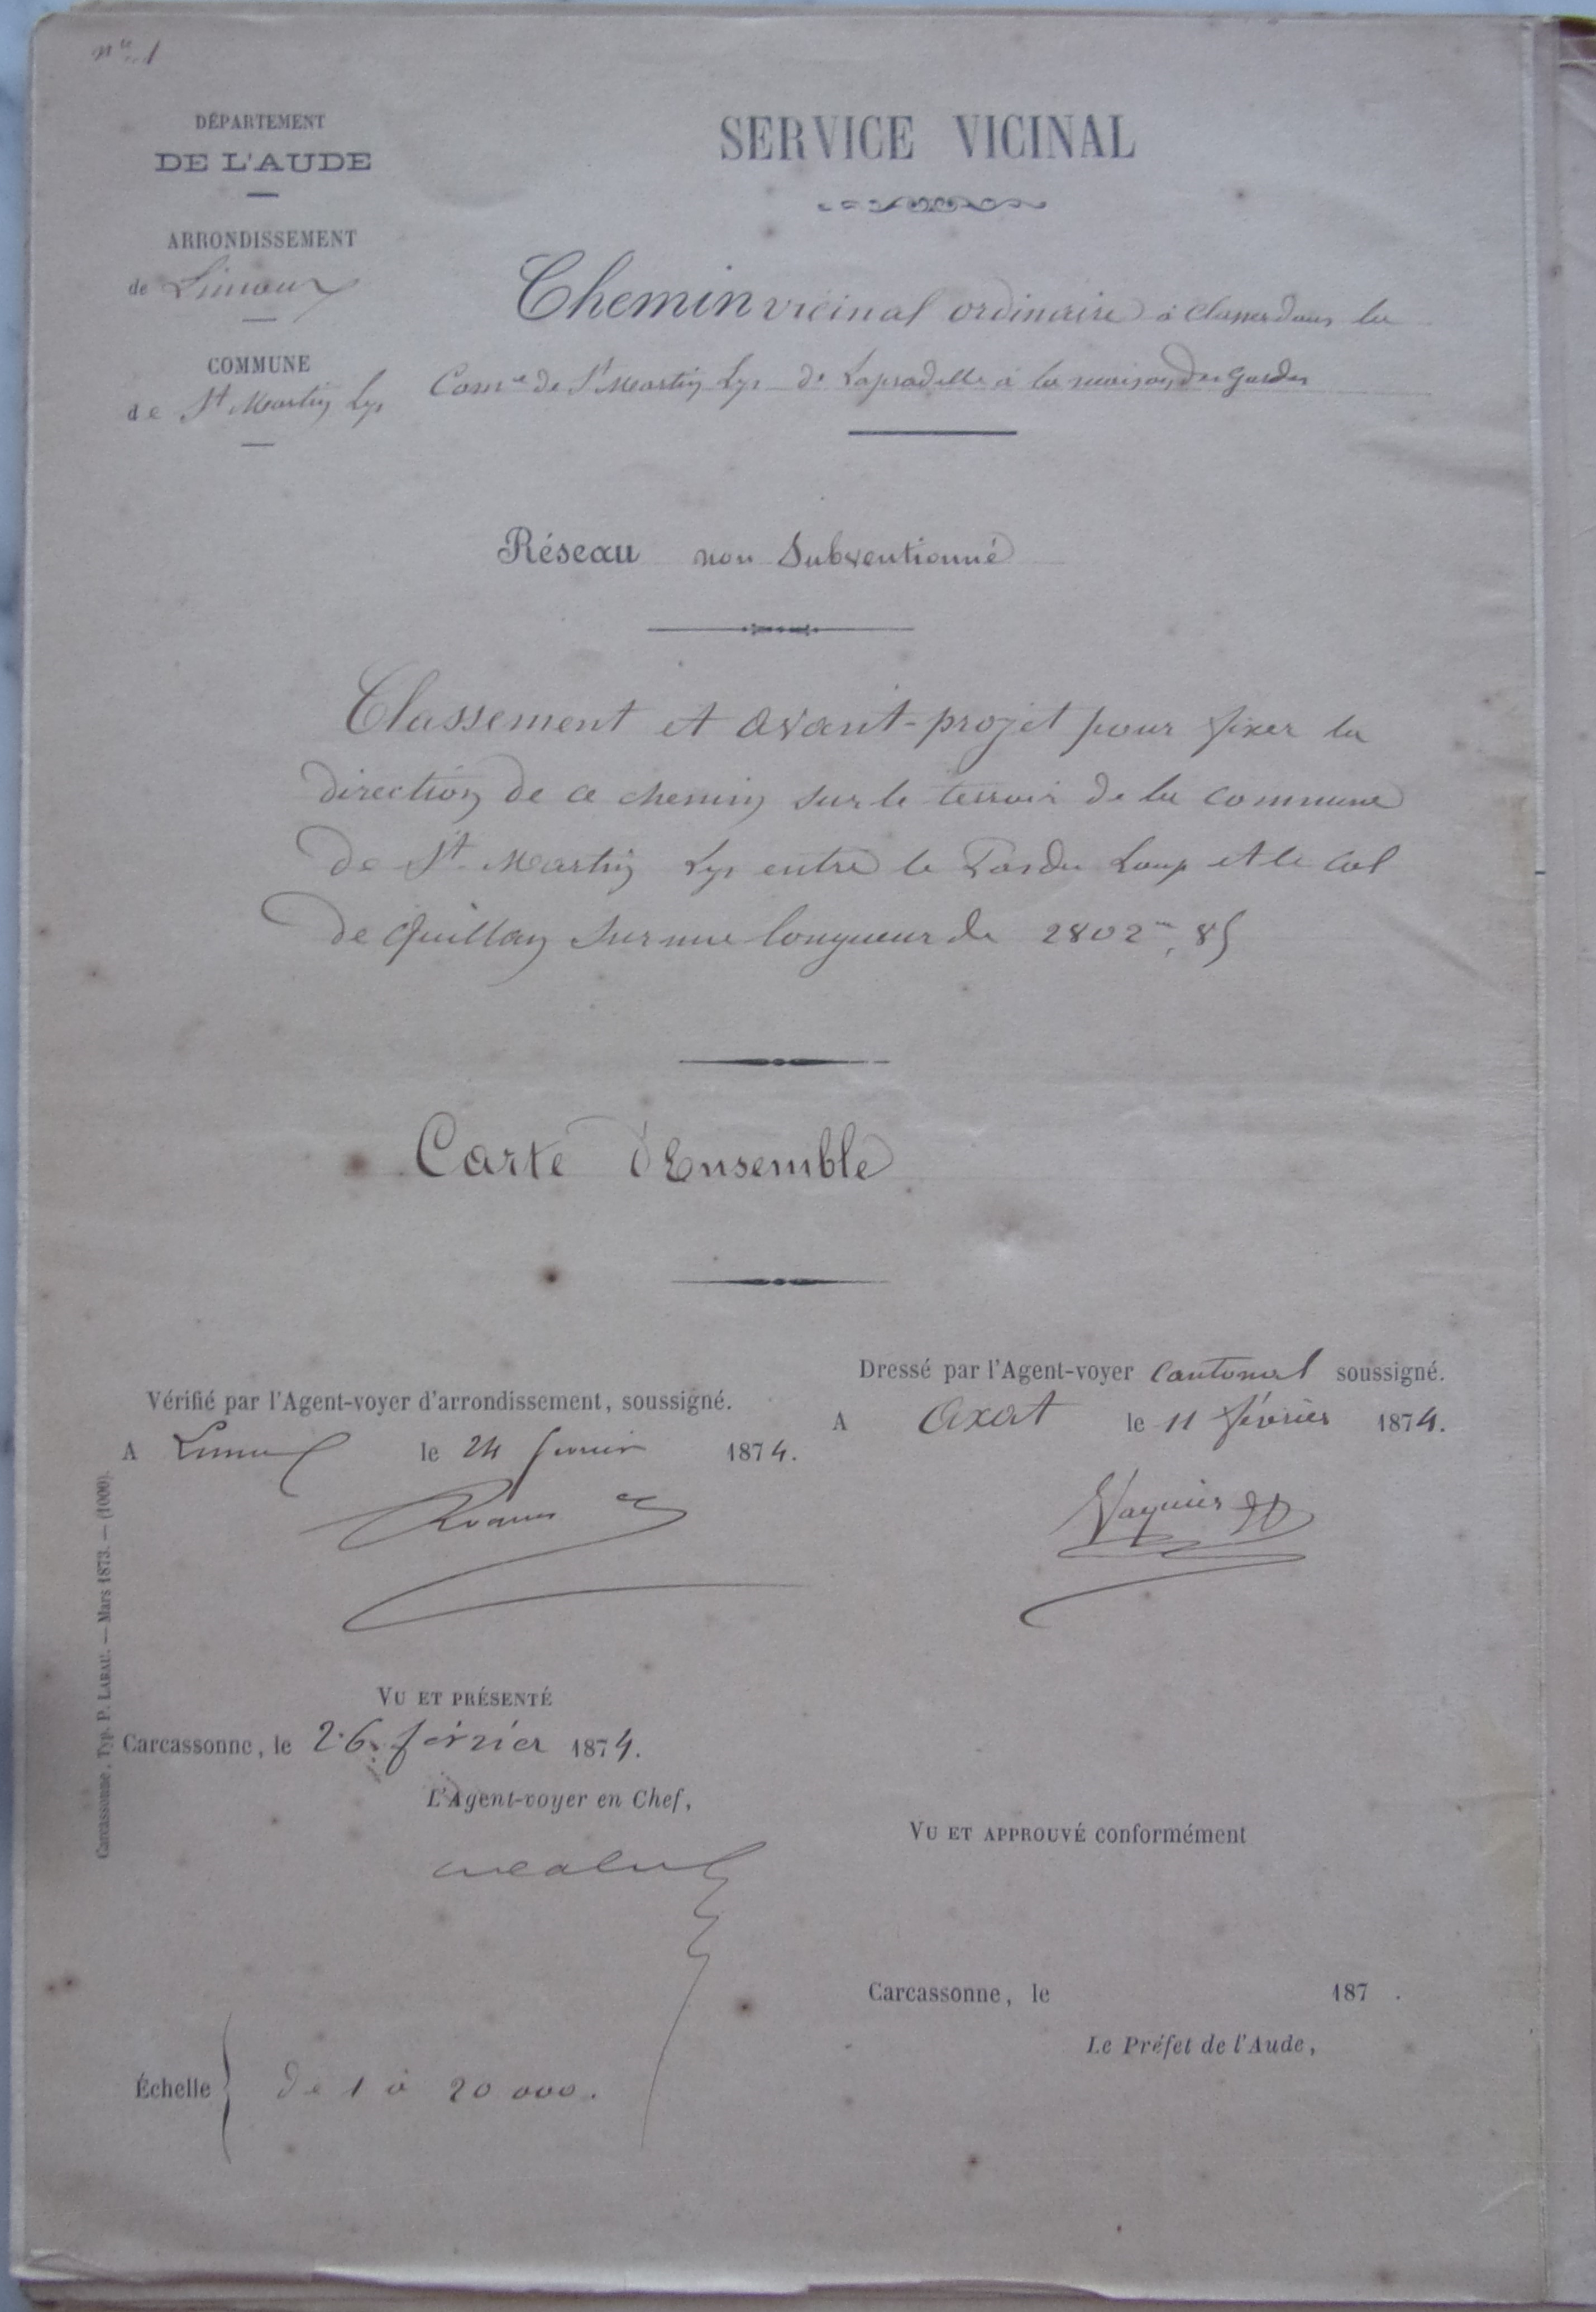 nº 1
DÉPARTEMENT
DE L'AUDE
ARRONDISSEMENT
de Limoux
COMMUNE
de St Martin Lys
SERVICE VICINAL
Chemin vicinal ordinaire à classer dans la
Comne de St Martin Lys de Lapradelle à la maison des Gardes
Réseau non Subventionné
Classement et avant-projet pour fixer la
direction de ce chemin sur le terroir de la commune
de St Martin Lys entre le Pas du Loup et le Col
de Quillan sur une longueur de 2802m,85
Carte d'Ensemble
Dressé par l'Agent-voyer cantonal soussigné.
A Axat le 11 février 1874.
Vérifié par l'Agent-voyer d'arrondissement, soussigné.
A Limoux le 24 février 1874.
VU ET PRÉSENTÉ
Carcassonne, le 26 février 1874.
L'Agent-voyer en Chef,
VU ET APPROUVÉ conformément
Carcassonne, le 187 .
Le Préfet de l'Aude,
Échelle de 1 à 20 000.
Carcassonne, Typ. P. LABAU. — Mars 1873. — (1000).